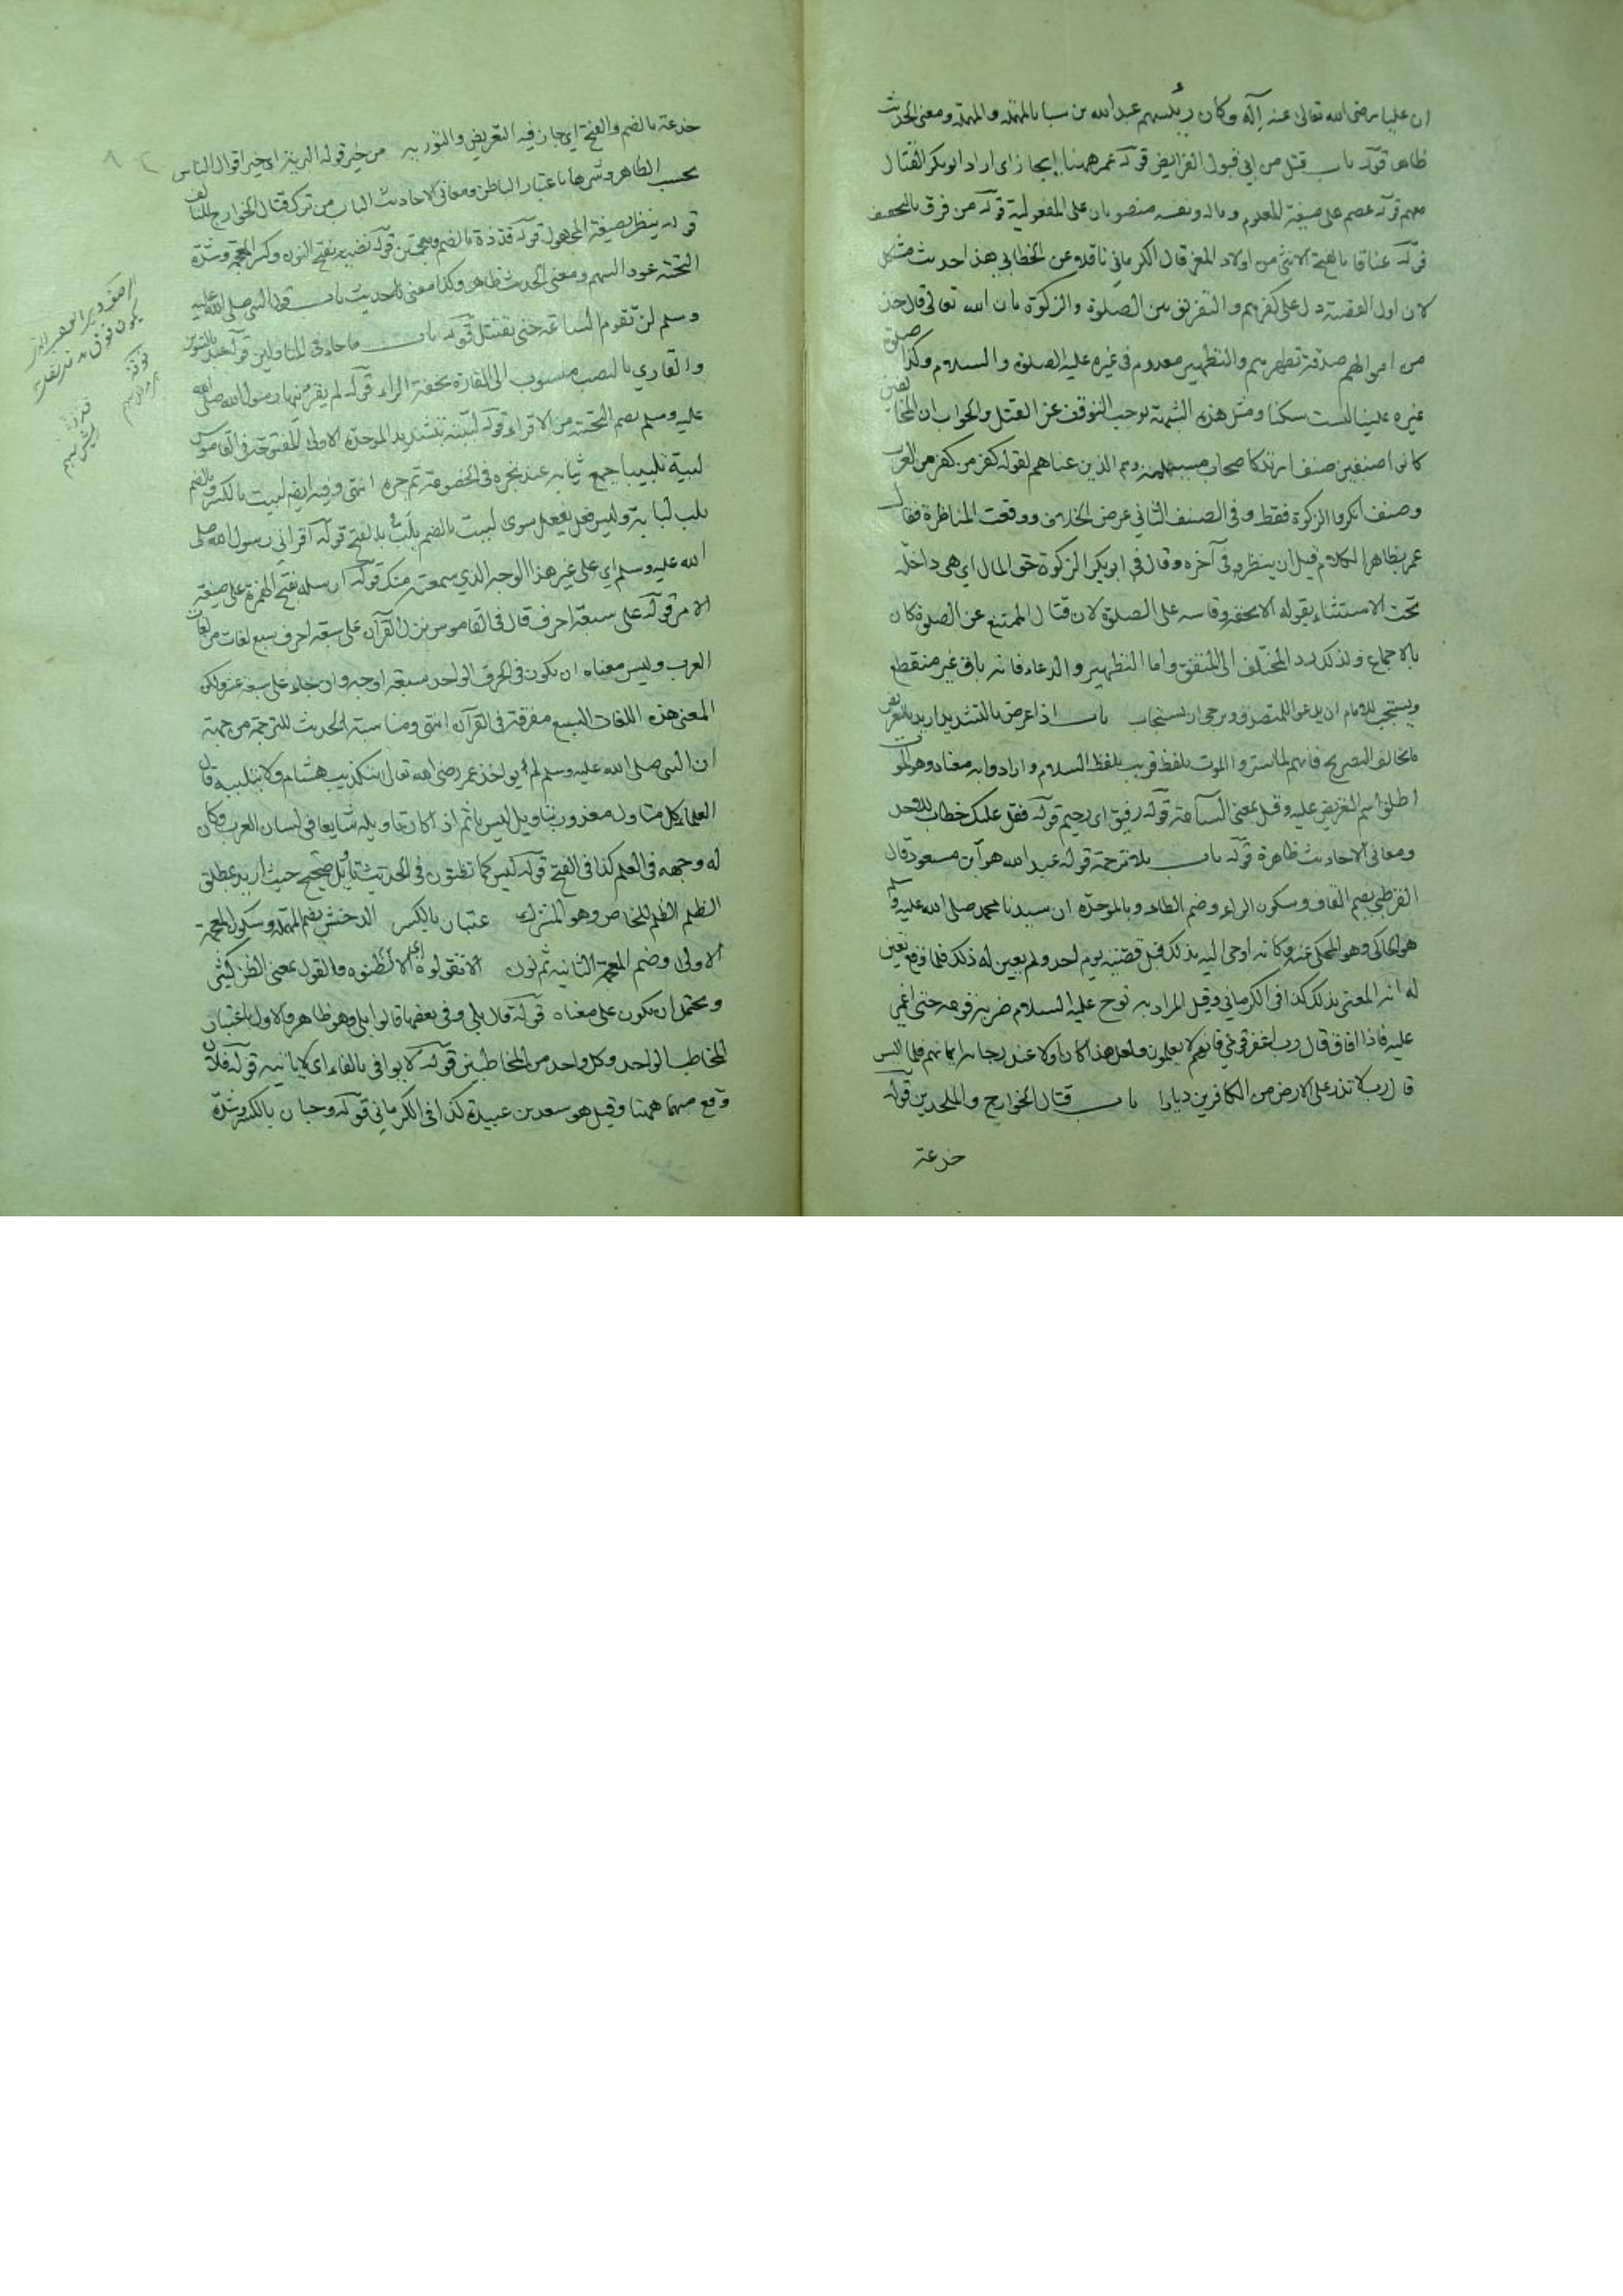 ان عليا رضى الله تعالى عنه آله وكان رئيسهم عبد الله بن سبا بالمهملة والمهملة ومعنى الحديث
ظاهر قوله باب قتل من ابى قبول الفرايض قوله عمر ههنا ايجاز اى اراد ابو بكر القتال
معهم قوله عصم على صيغة المعلوم وماله ونفسه منصوبان على المفعولية قوله من فرق بالتخفيف
قوله عناقا بالفتح الانثى من اولاد المعز قال الكرمانى ناقلا عن الخطابى هذا حديث مشكل
لان اول القصة دل على كفرهم والتفريق بين الصلوة والزكوة بان الله تعالى قال خذ
من اموالهم صدقة تطهرهم والتطهير معدوم فى غيره عليه الصلوة والسلام وكذا صلوة
غيره علينا ليست سكنا ومثل هذه الشبهة يوجب التوقف عن القتل والجواب ان المخالفين
كانوا صنفين صنف ارتد كاصحاب مسيلمة وهم الذين عناهم لقوله كفر من كفر من العرب
وصنف انكروا الزكوة فقط وفى الصنف الثانى عرض الخلاف ووقعت المناظرة فقال
عمر بظاهر الكلام قبل ان ينظر فى آخره وقال ابو بكر الزكوة حق المال اى هى داخلة
تحت الاستثناء بقوله الا بحقه وقاسه على الصلوة لان قتال الممتنع عن الصلوة كان
بالاجماع ولذلك رد المختلف الى المتفق واما التطهير والدعاء فانه باق غير منقطع
ويستحب للامام ان يدعو للمتصدق ويرجى ان يستجاب باب اذا عرض بالتشديد اريد بالتعريض
ما يخالف التصريح فانهم لما ستروا الموت بلفظ قريب بلفظ السلام وارادوا به معناه وهو الموت
اطلق اسم التعريض عليه وقيل بمعنى السآمة قوله رفيق اى رحيم قوله فقل عليك خطاب للاحد
ومعانى الاحاديث ظاهرة قوله باب بلا ترجمة قوله عبد الله هو ابن مسعود قال
القرطبى بضم القاف وسكون الراء وضم الطاء وبالموحدة ان سيدنا محمد صلى الله عليه وسلم
هو الحاكى وهو المحكى عنه وكانه اوحى اليه بذلك قبل قضية يوم احد ولم يعين له ذلك فلما وقع تعين
له انه المعنى بذلك كذا فى الكرمانى وقيل المراد به نوح عليه السلام ضربه قومه حتى اغمى
عليه فاذا افاق قال رب اغفر قومى فانهم لا يعلمون ولعل هذا كان اولا عند رجاء ايمانهم فلما ايس
قال رب لا تذر على الارض من الكافرين ديارا باب قتال الخوارج والملحدين قوله
خدعة
خدعة بالضم والفتح اى جاز فيه التعريض والتورية من خير قوله البرية اى خير اقوال الناس
بحسب الظاهر وشرها باعتبار الباطن ومعانى الاحاديث الباب من ترك قتال الخوارج للتالف
قوله ينظر بصيغة المجهول قوله قذذه بالضم ومعجمتين قوله نضيه بفتح النون وكسر المعجمة وشدة
التحتية عود السهم ومعنى الحديث ظاهر وكذا معنى الحديث باب قول النبى صلى الله عليه
وسلم لن تقوم الساعة حتى يقتتل قوله باب ما جاء فى المتاولين قوله عبد بالتنوين
والقارى بالنصب منسوب الى القارة بخفة الراء قوله لم يقرئنيها رسول الله صلى الله
عليه وسلم بضم التحتية من الاقراء قوله لببته بتشديد الموحدة الاولى المفتوحة فى القاموس
لببه تلبيبا جمع ثيابه عند نحره فى الخصومة ثم جره انتهى وفيه ايضا لببت بالكسر وبالضم
يلب لبابة وليس فعل يفعل سوى لببت بالضم يلب بالفتح قوله اقرانى رسول الله صلى
الله عليه وسلم اى على غير هذا الوجه الذى سمعته منك قوله ارسله بفتح الهمزة على صيغة
الامر قوله على سبعة احرف قال فى القاموس نزل القرآن على سبعة احرف سبع لغات من لغات
العرب وليس معناه ان يكون فى الحرف الواحد سبعة اوجه وان جاء على سبعة عشر ولكن
المعنى هذه اللغات السبع مفرقة فى القرآن انتهى ومناسبة الحديث للترجمة من جهة
ان النبى صلى الله عليه وسلم لم يواخذ عمر رضى الله تعالى بتكذيب هشام ولا بتلبيبه قال
العلماء كل متاول معذور بتاويل ليس باثم اذا كان تاويله شايعا فى لسان العرب وكان
له وجهه فى العلم كذا فى الفتح قوله ليس كما تظنون فى الحديث تاويل صحيح حيث اريد بمطلق
الظلم الظلم الخاص وهو الشرك عتبان بالكسر الدخشن بضم المهملة وسكون المعجمة
الاولى وضم المعجمة الثانية ثم نون الا تقولوه اى الا تظنوه والقول بمعنى الظن كثير
ويحتمل ان يكون على معناه قوله قال بلى وفى بعضها قالوا بلى وهو ظاهر والاول باعتبار ان
المخاطب الواحد وكل واحد من المخاطبين قوله لا يوافى بالفاء اى لا ياتيه قوله فلان
وقع مبهما ههنا وقيل هو سعد بن عبيدة كذا فى الكرمانى قوله وحبان بالكسر وشدة